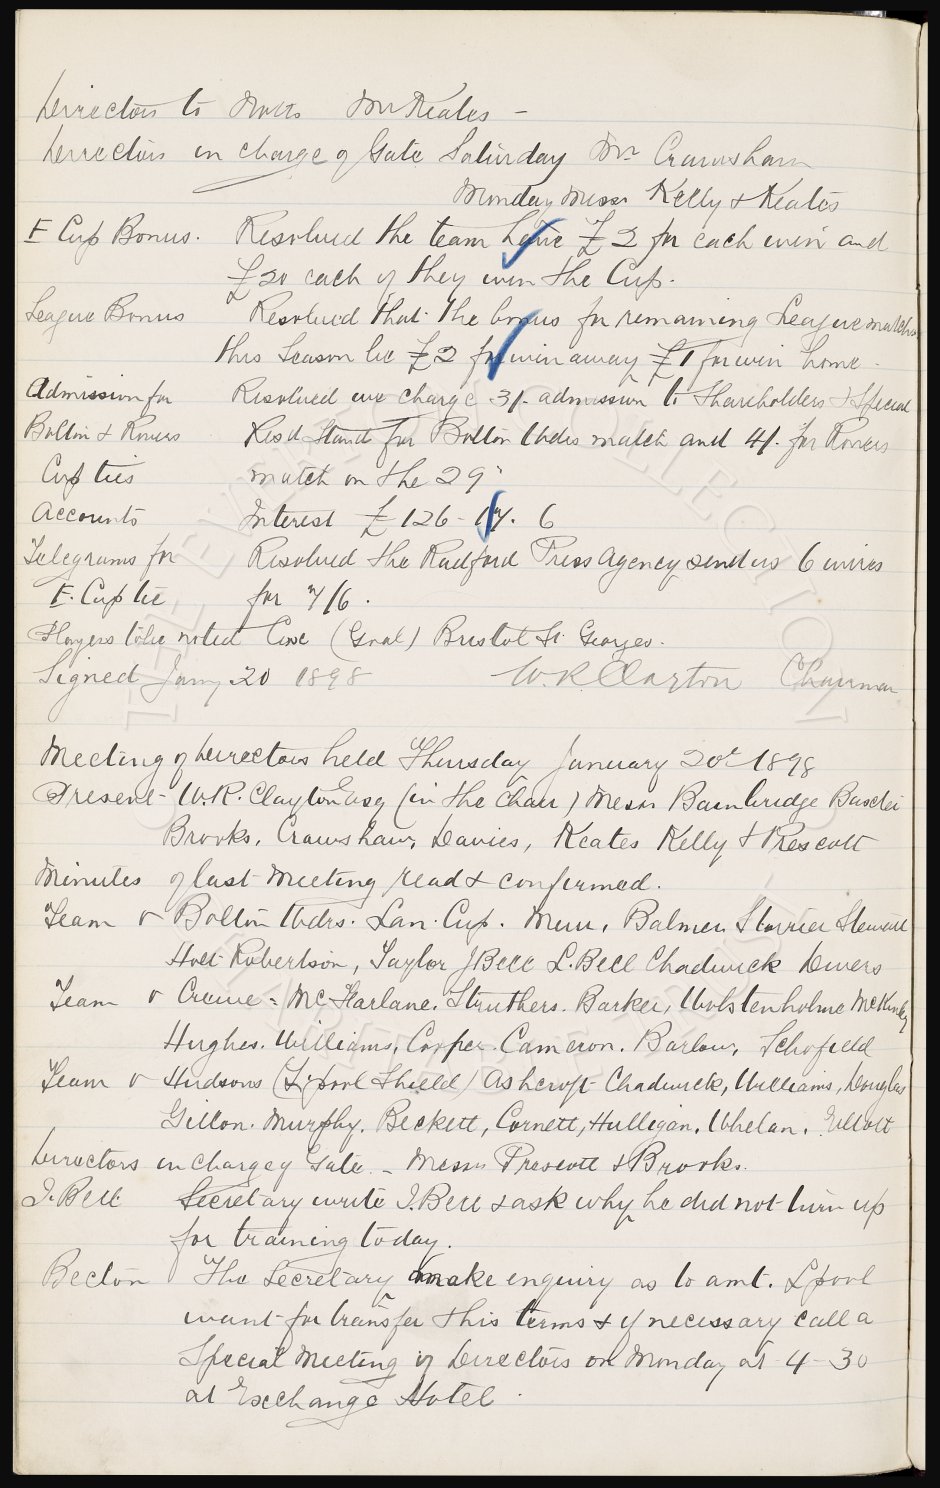 Directors to Notts Mr Keates -
Directors in charge of Gate Saturday Mr Crawshaw
Monday Messrs Kelly & Keates
E Cup Bonus. Resolved the team have £2 for each win and
£20 each if they win the Cup.
League Bonus Resolved that the bonus for remaining League matches
this Season be £2 for win away £1 for win home.
Admission for Resolved we charge 3/- admission to Shareholders & Special
Bolton & Rovers Resd Stand for Bolton Wdrs match and 4/- for Rovers
Cup ties match on the 29"
Accounts Interest £126-17.6
Telegrams for Resolved the Radford Press Agency send us 6 wires
E. Cup tie for 7/6.
Players to be noted Cove (Goal) Bristol St Georges.
Signed Jany 20 1898 W.R. Clayton Chairman
Meeting of Directors held Thursday January 20th 1898
Present - W.R. Clayton Esq (in the chair) Messrs Bainbridge Baxter
Brooks, Crawshaw, Davies, Keates Kelly & Prescott
Minutes of last Meeting read & confirmed.
Team v Bolton Wdrs. Lan. Cup. Muir, Balmer, Storrier Stewart
Holt Robertson, Taylor J Bell L. Bell Chadwick Divers
Team v Crewe - McFarlane. Struthers. Barker, Wolstenholme McKinley
Hughes. Williams, Cooper. Cameron. Barlow, Schofield
Team v Hudsons (L'pool Shield) Ashcroft Chadwick, Williams, Douglas
Gillon. Murphy. Beckett, Cornett, Hulligan. Whelan. Elliott
Directors in charge of Gate - Messrs Prescott & Brooks.
J. Bell Secretary write J. Bell & ask why he did not turn up
for training today.
Becton The Secretary make enquiry as to amt. Lpool
want for transfer & his terms & if necessary call a
Special Meeting of Directors on Monday at 4-30
at Exchange Hotel.